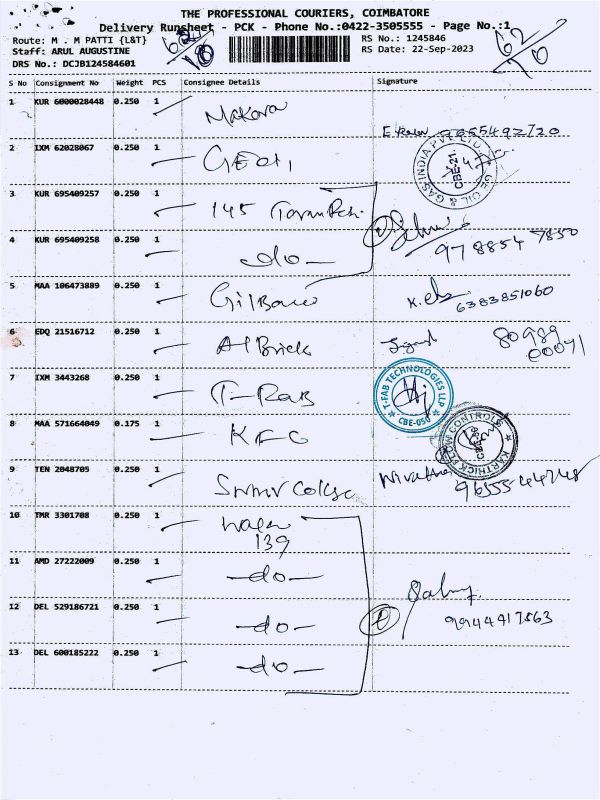 THE PROFESSIONAL COURIERS, COIMBATORE
Delivery Runsheet - PCK - Phone No.:0422-3505555 - Page No.:1
Route: M . M PATTI {L&T}
RS No.: 1245846
Staff: ARUL AUGUSTINE
RS Date: 22-Sep-2023
DRS No.: DCJB124584601
62
70
S No Consignment No Weight PCS Consignee Details Signature
1 KUR 6000028448 0.250 1 Makara
9055492720
2 IXM 62028067 0.250 1
GE OIL & GAS INDIA PVT. LTD. CBE-21
3 KUR 695409257 0.250 1 145
4 KUR 695409258 0.250 1 -do-
978854 7850
5 MAA 106473889 0.250 1 Gilbarco
6383851060
6 EDQ 21516712 0.250 1 Al Brick
80989
00071
7 IXM 3443268 0.250 1 T-Fab
T-FAB TECHNOLOGIES LLP CBE-050
8 MAA 571664049 0.175 1 KFC
KARTHICK FLOW CONTROLS
9 TEN 2048705 0.250 1
10 TMR 3301708 0.250 1
139
11 AMD 27222009 0.250 1 -do-
12 DEL 529186721 0.250 1 -do-
9944917563
13 DEL 600185222 0.250 1 -do-